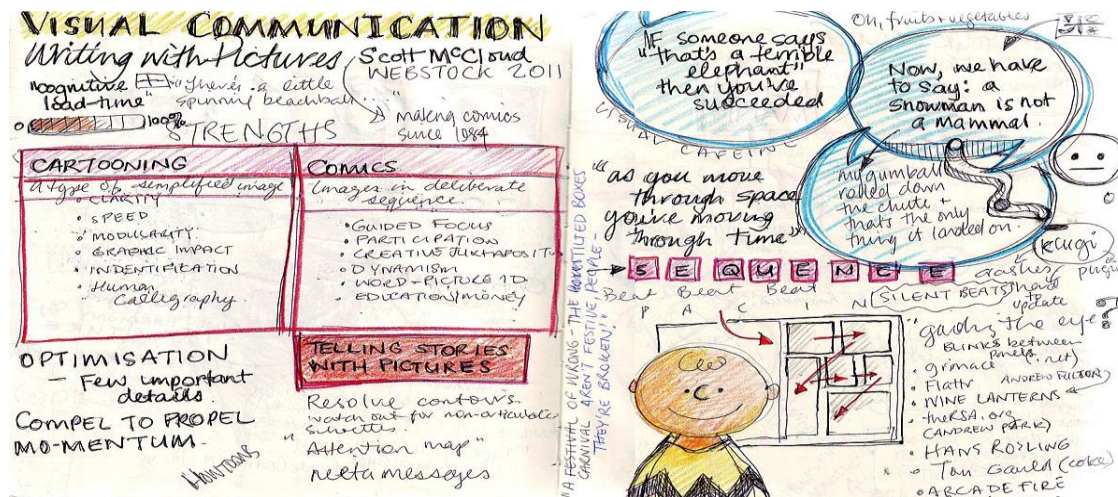 VISUAL COMMUNICATION
Writing with Pictures
Scott McCloud
WEBSTOCK 2011
"cognitive load-time"
"There's a little
spinning beachball...."
making comics
since 1984
0 100%
STRENGTHS
CARTOONING
A type of simplified image
• CLARITY
• SPEED
• MODULARITY
• GRAPHIC IMPACT
• INDENTIFICATION
• Human
Calligraphy.
COMICS
Images in deliberate
sequence
• GUIDED FOCUS
• PARTICIPATION
• CREATIVE JUXTAPOSIT
• DYNAMISM
• WORD-PICTURE ID
• EDUCATION/MONEY
OPTIMISATION
- Few important
details.
COMPEL TO PROPEL
MO-MENTUM.
HOWTOONS
TELLING STORIES
WITH PICTURES
Resolve contours
watch out for non-articulate
"Attention map"
messages
"A FESTIVAL OF WRONG - THE TILTED BOXES
CARNIVAL AREN'T FESTIVE, PEOPLE -
THEY'RE BROKEN!"
IF someone says
"that's a terrible
elephant"
then you've
succeeded
VISUAL CAFEINE
Oh, fruits + vegetables
Now, we have
to say: a
snowman is not
a mammal.
my gumball
rolled down
the chute +
that's the only
thing it landed on.
"as you move
through space
you're moving
through time"
SEQUENCE
Beat Beat Beat
P A C I N
SILENT BEATS
hard
to
update
"guiding the eye"
BLINKS between
panels
• grimace
• Flattr
• NINE LANTERNS
• theRSA.org
(ANDREW PARK)
• HANS ROSLING
• Tom Gauld (coke)
• ARCADE FIRE